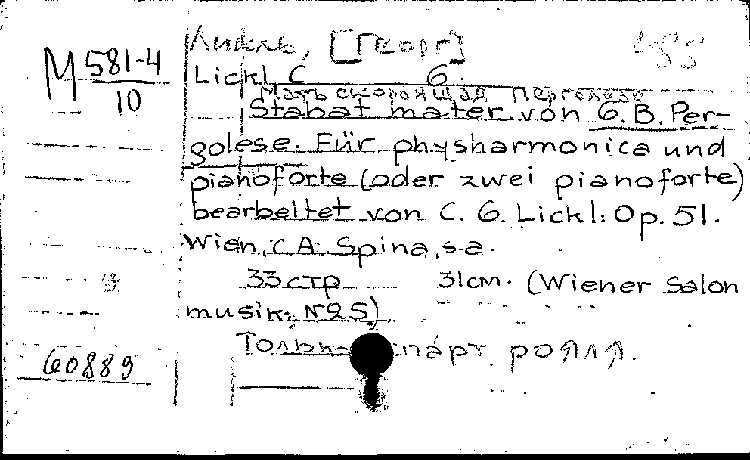 Ликль, [Георг]
М 581-4
10
Lickl C G
Мать скорбящая Перголезе
Stabat mater von G. B. Per-
golese. Für physharmonica und
pianoforte (oder zwei pianoforte)
bearbeitet von C. G. Lickl: Op. 51.
Wien, C. A. Spina, s-a.
33 стр 31см. (Wiener Salon
musik: № 25)
Только парт. рояля.
60889